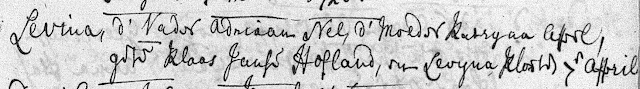 Levina, d' Vader Adriaan Nel, d' Moeder Katryna April,
Klaas Jans Hofland, en Levyna April